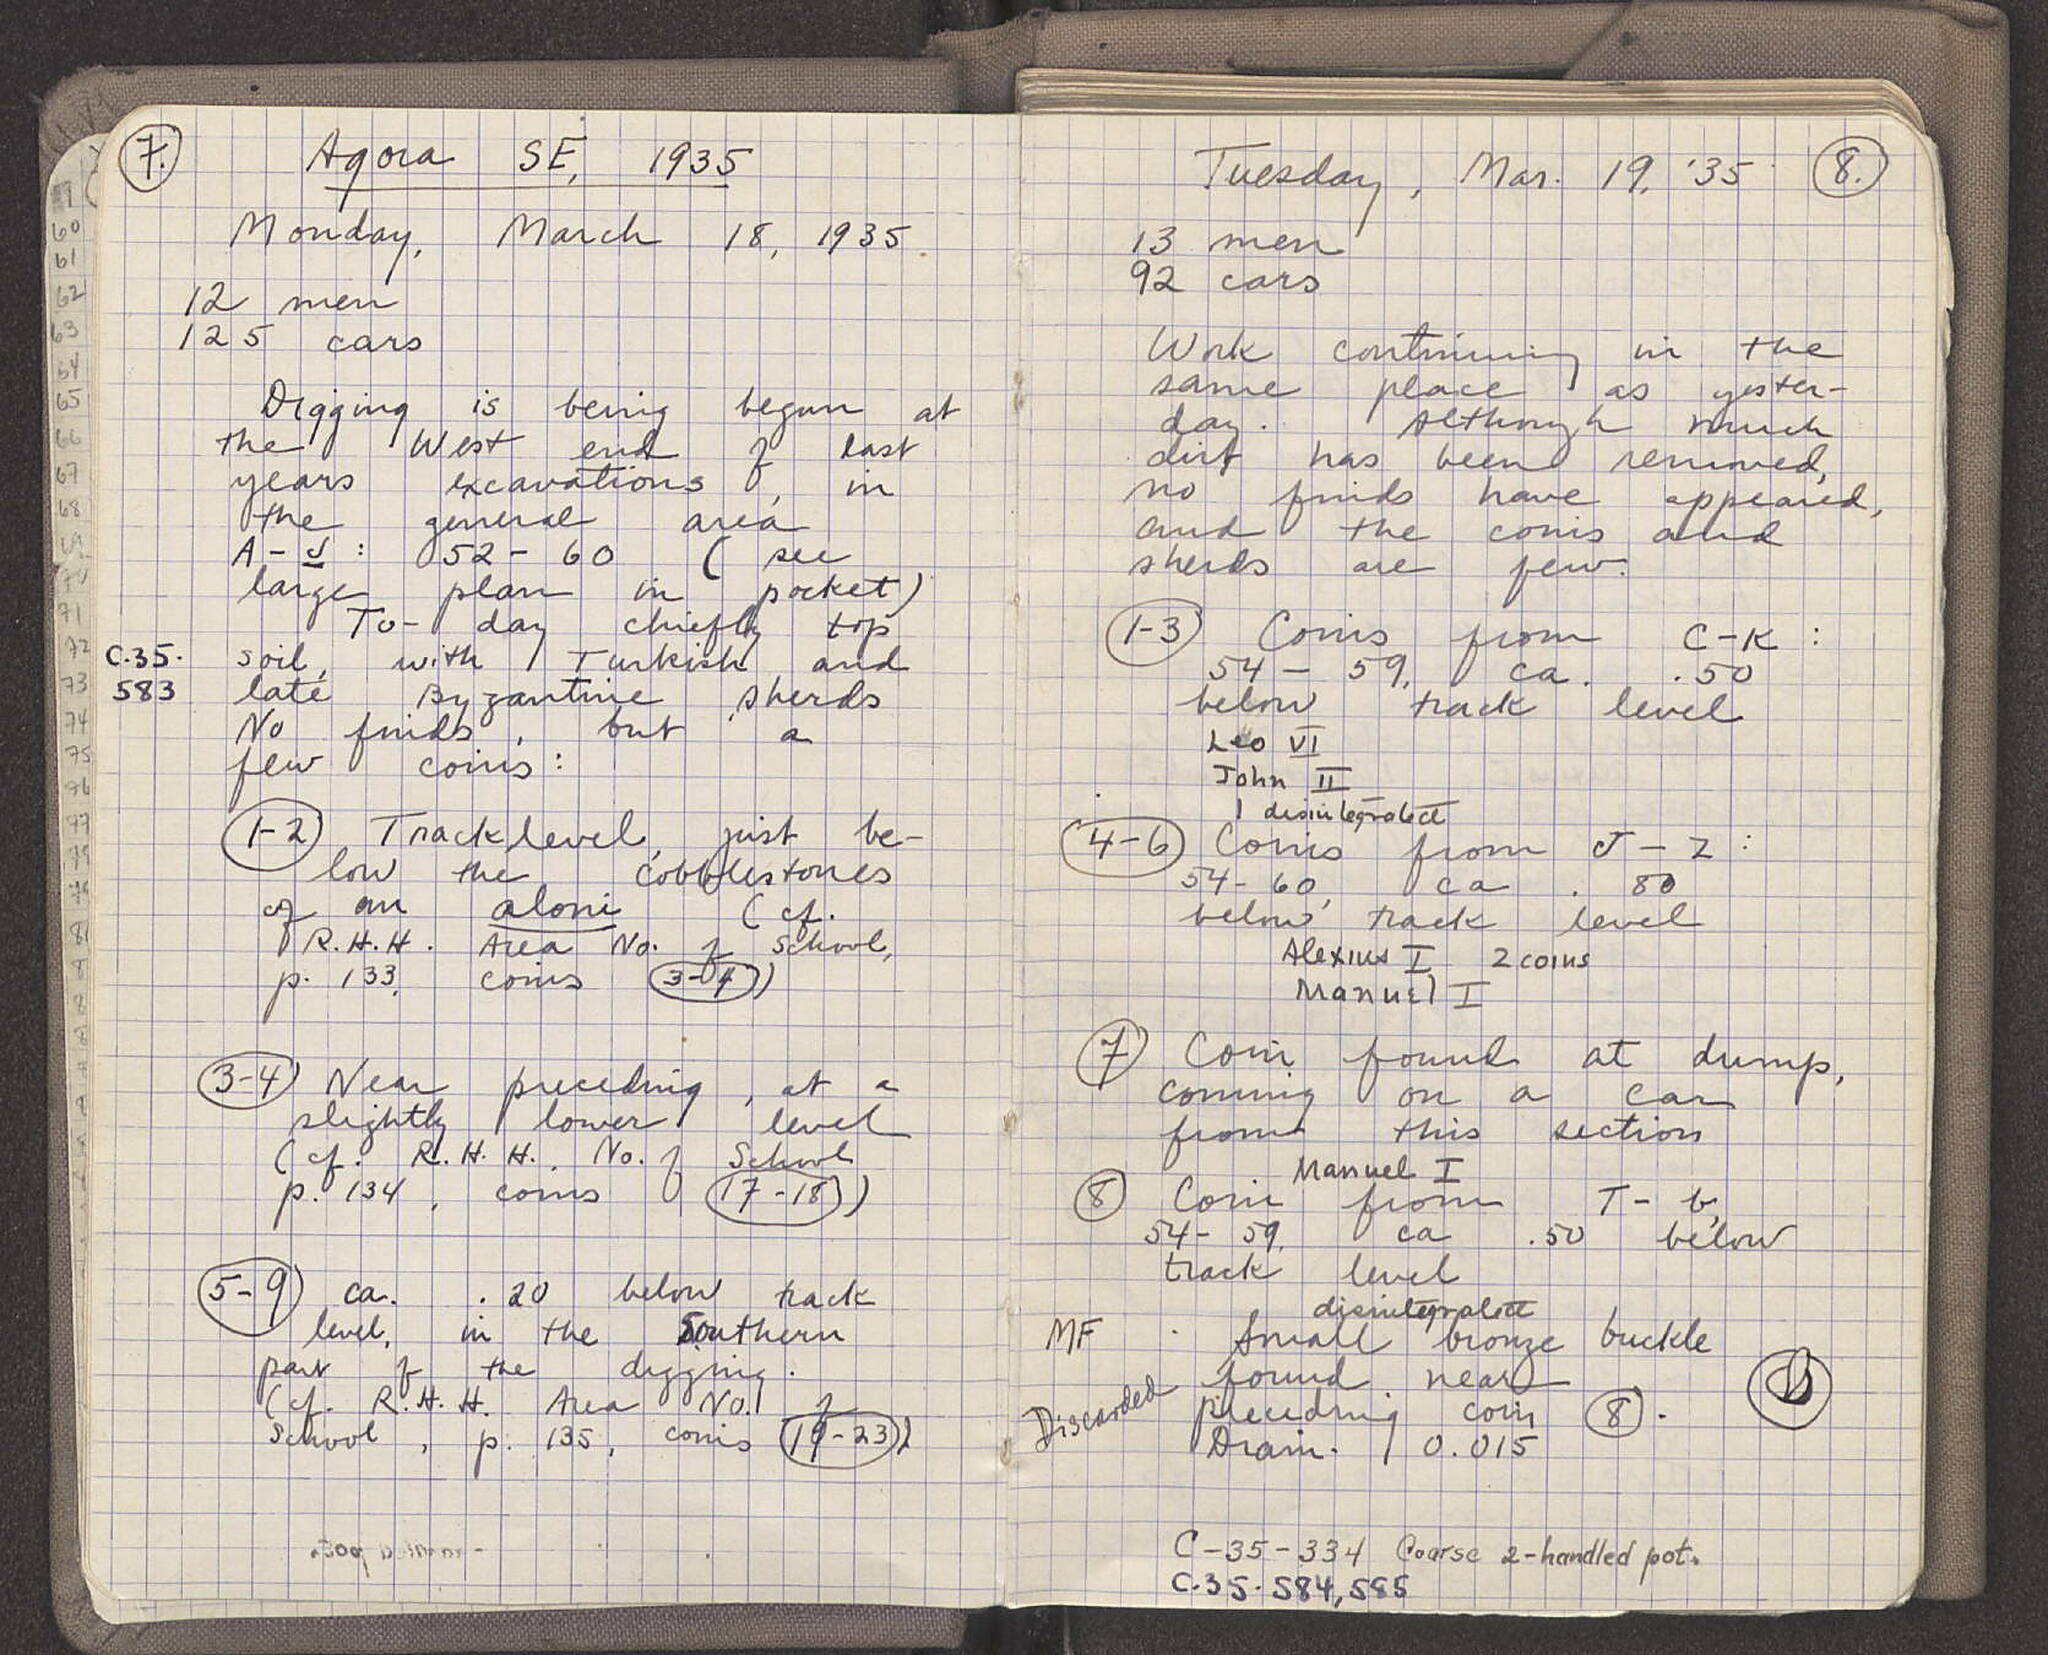 7.
Agora SE, 1935
Monday, March 18, 1935
12 men
125 cars
Digging is being begun at
the West end of last
years excavations, in
the general area
A - J : 52 - 60 ( see
large plan in pocket)
To-day chiefly top
soil, with Turkish and
late Byzantine sherds
C.35.
583
No finds, but a
few coins :
1-2 Track level, just be-
low the cobblestones
of an aloni (cf.
R.H.H. Area No. of School,
p. 133, coins 3-4)
3-4 Near preceding, at a
slightly lower level
(cf. R.H.H. No. of School
p. 134, coins 17-18)
5-9 ca. .20 below track
level, in the Southern
part of the digging.
(cf. R.H.H. Area No. of
School, p. 135, coins 19-23)
Tuesday, Mar. 19, '35
8.
13 men
92 cars
Work continuing in the
same place as yester-
day. Although much
dirt has been removed,
no finds have appeared,
and the coins and
sherds are few.
1-3 Coins from C-K :
54 - 59, ca. .50
below track level
Leo VI
John II
1 disintegrated
4-6 Coins from J - Z :
54-60, ca . 80
below track level
Alexius I 2 coins
Manuel I
7 Coin found at dump,
coming on a car
from this section
Manuel I
8 Coin from T - b,
54 - 59, ca .50 below
track level
disintegrated
MF Small bronze buckle
found near
Discarded
preceding coin 8.
Diam. 0.015
C-35-334 Coarse 2-handled pot.
C.35.584,585
60
61
62
63
64
65
66
67
68
69
71
72
73
74
75